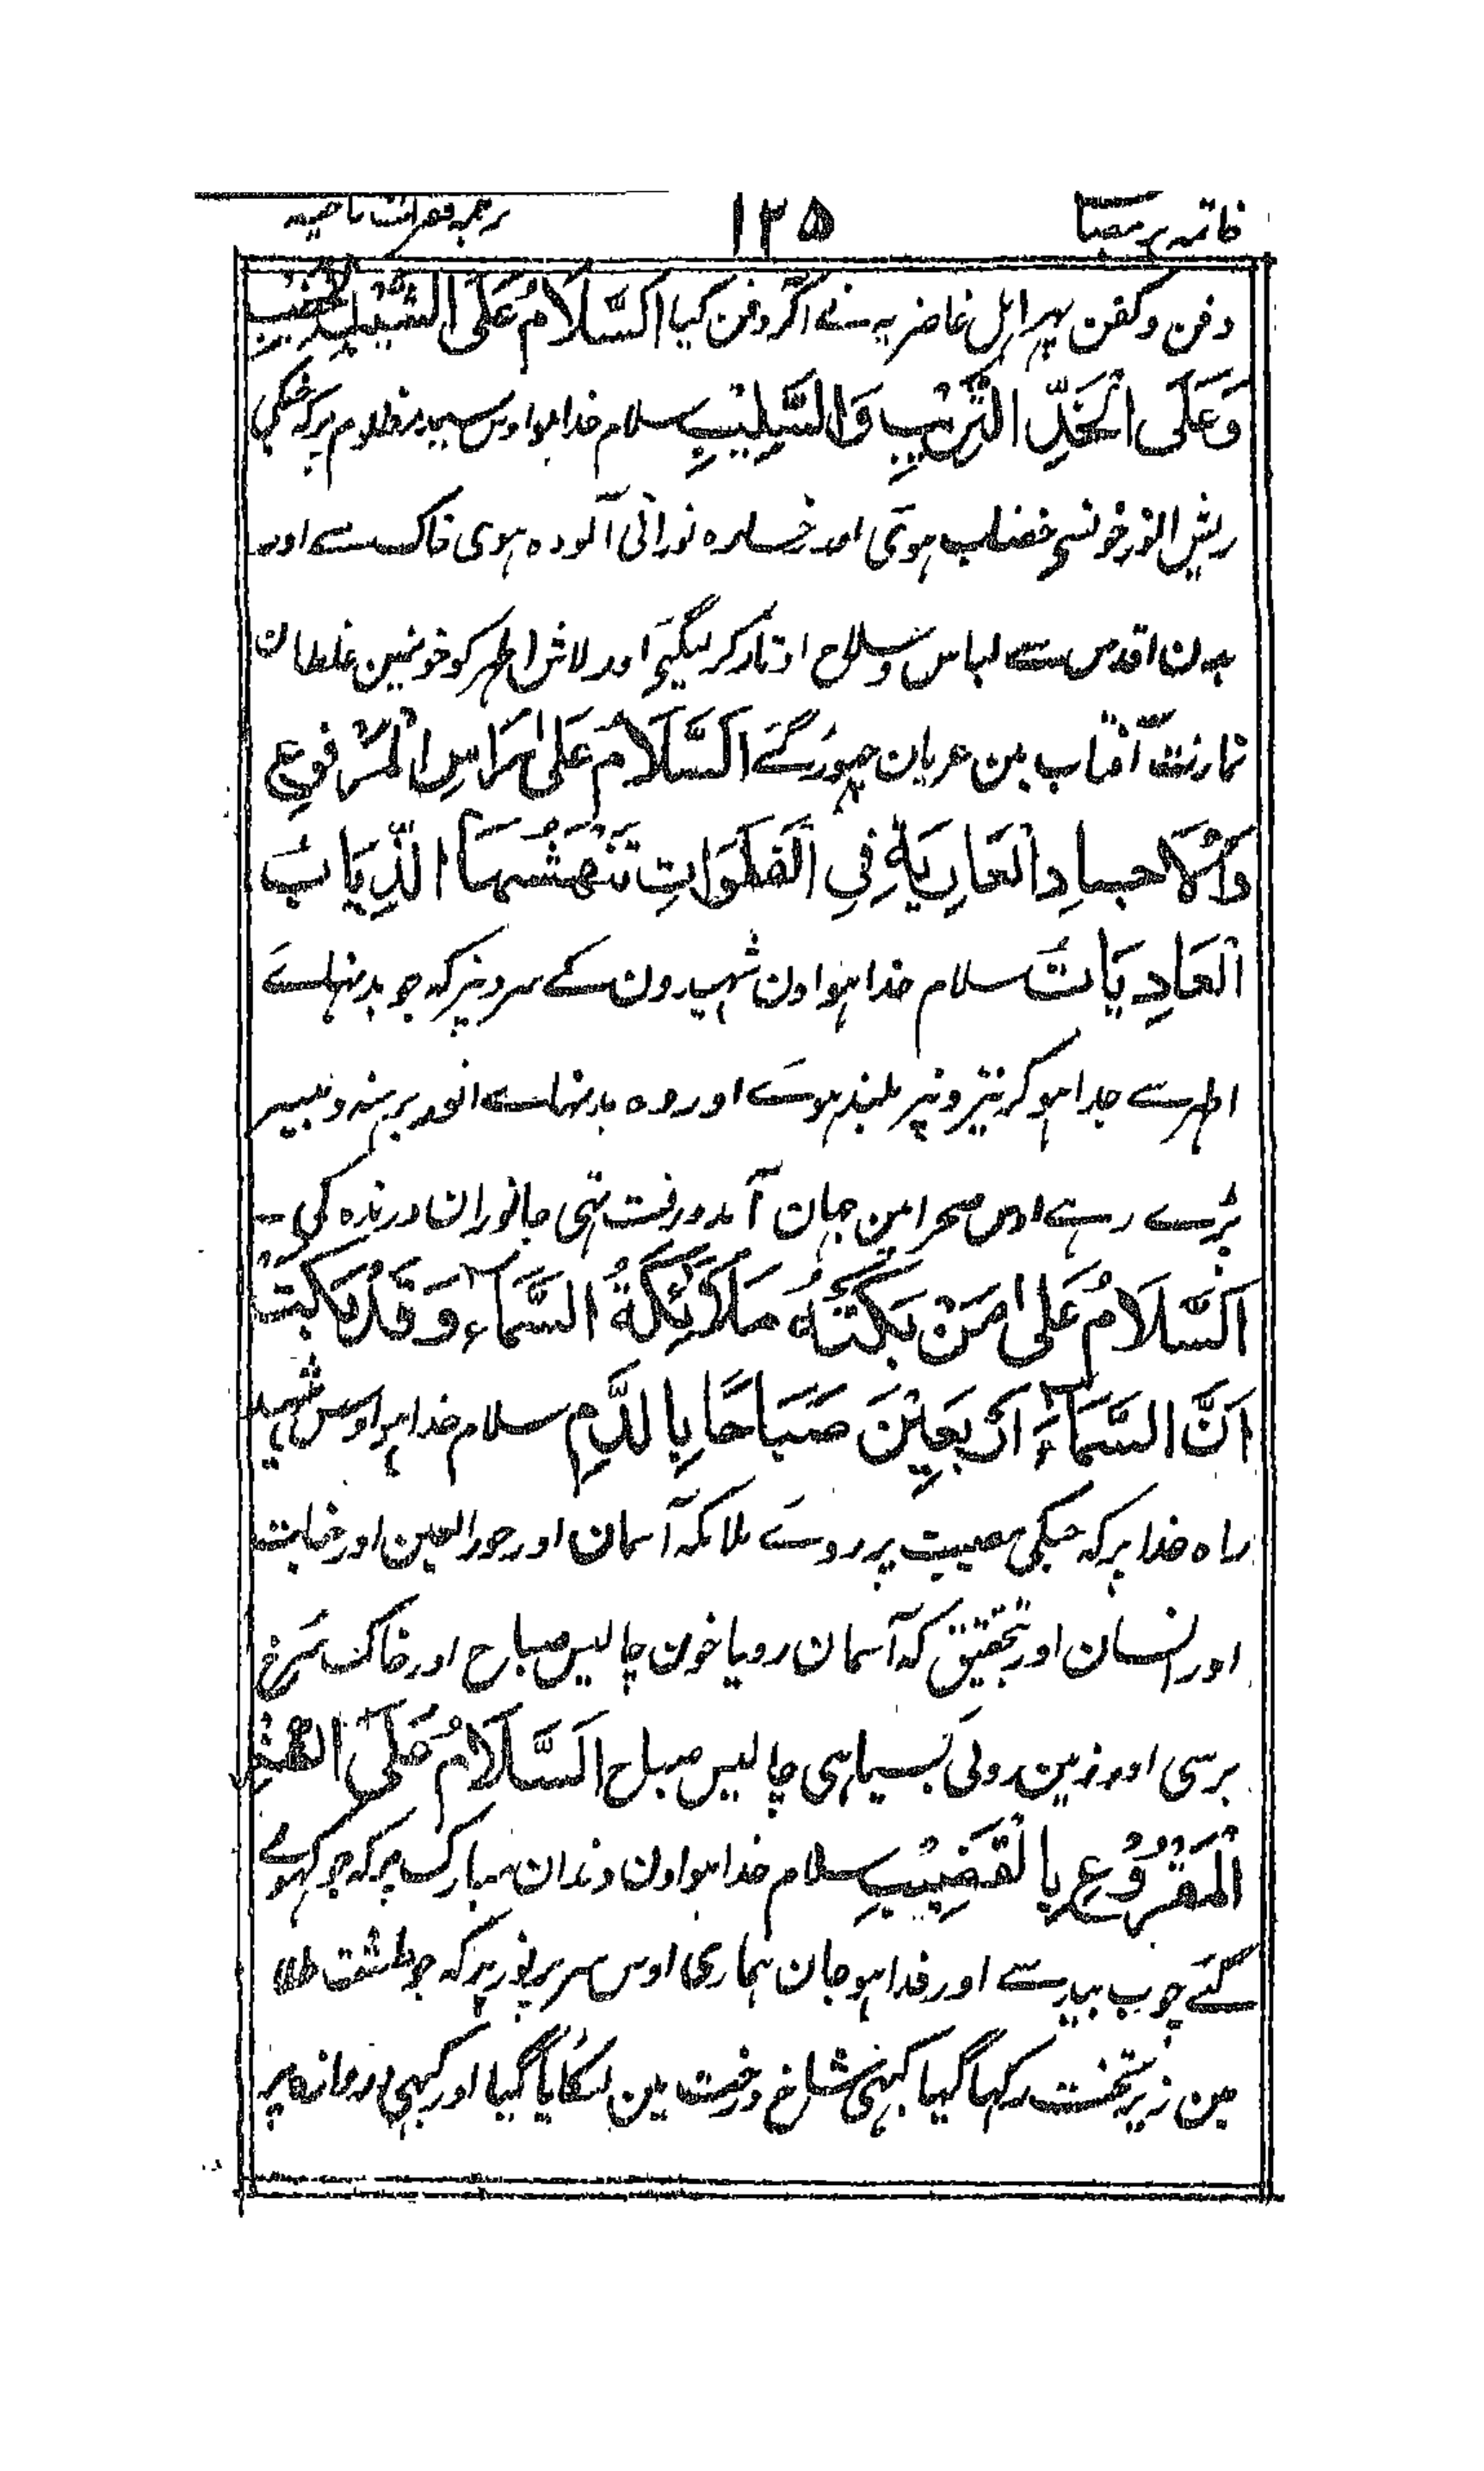 ۱۲۵
دفن و کفن پہر اہل غاضریہ نے اگر دفن کیا اَلسَّلَامُ عَلَی الشَّیْبِ الْخَضِیْبِ
وَعَلَی الْخَدِّ التَّرِیْبِ وَالسَّلِیْبِ سلام خدا ہوا وس سید مظلوم پر کہ جنکی
ریش انور خونسے خضاب ہوئی اور رخسارہ نورانی آلودہ ہوی خاک سے اور
بدن اقدس سے لباس و سلاح اوتار کر لیگئے اور لاش اطہر کو خونمین غلطان
تمازت آفتاب مین عریان چھوڑ گئے اَلسَّلَامُ عَلٰی رَاسِ الْمَرْفُوعِ
وَالْاَجسادِ الْعَارِیَۃِ فِی الْفَلَوَاتِ تَنْهَشُهَا الذِّیَابُ
الْعَادِیَاتُ سلام خدا ہوا اون شہیدون کے سرونپر کہ جو بدنہائے
اطہر سے جدا ہو کر نیزونپر بلند ہوئے اور وہ بدنہائے انور برہنہ و بیسر
پڑے رہے اوس صحرا مین جہان آمد و رفت تہی جانوران درندہ کی ۔
اَلسَّلَامُ عَلٰی مَنْ بَکَتْہُ مَلَائِکَۃُ السَّمَآءِ وَقَدْ بَکَتْ
اَنَّ السَّمَآءَ اَرْبَعِیْنَ صَبَاحًا بِالدَّمِ سلام خدا ہوا وس شہید
راہ خدا پر کہ جنکی مصیبت پر روئے ملائکہ آسمان اور حور العین اور جنات
اور انسان اور تحقیق کہ آسمان رویا خون چالیس صباح اور خاک سرخ
برسی اور زمین روئی بسیاہی چالیس صباح اَلسَّلَامُ عَلَی الثَّغْرِ
الْمَقْرُوْعِ بِالْقَضِیْبِ سلام خدا ہوا اون دندان مبارک پر کہ جو کہوئے
گئے چوب بید سے اور فدا ہو جان ہماری اوس سر پر نور پر کہ جو طشت طلا
مین زیر تخت رکہا گیا کبہی شاخ درخت مین لٹکایا گیا اور کبہی دروازہ پر